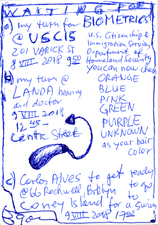 WAITING FOR
a) my turn for BIOMETRICS
@ USCIS
U.S. Citizenship &
Immigration Services
Department of
Homeland Security
201 VARICK St
8 VIII 2018 9:00
you can now choose
ORANGE
BLUE
PINK
GREEN
PURPLE
UNKNOWN
as your hair
color
b) my turn @
LANDA hearing
aid doctor
9 VIII 2018
12:45
Centre Street
c) Carlos ALVES to get ready
@ 66 Rockwell Brklyn to go
to Coney Island for a swim
9 VIII 2018